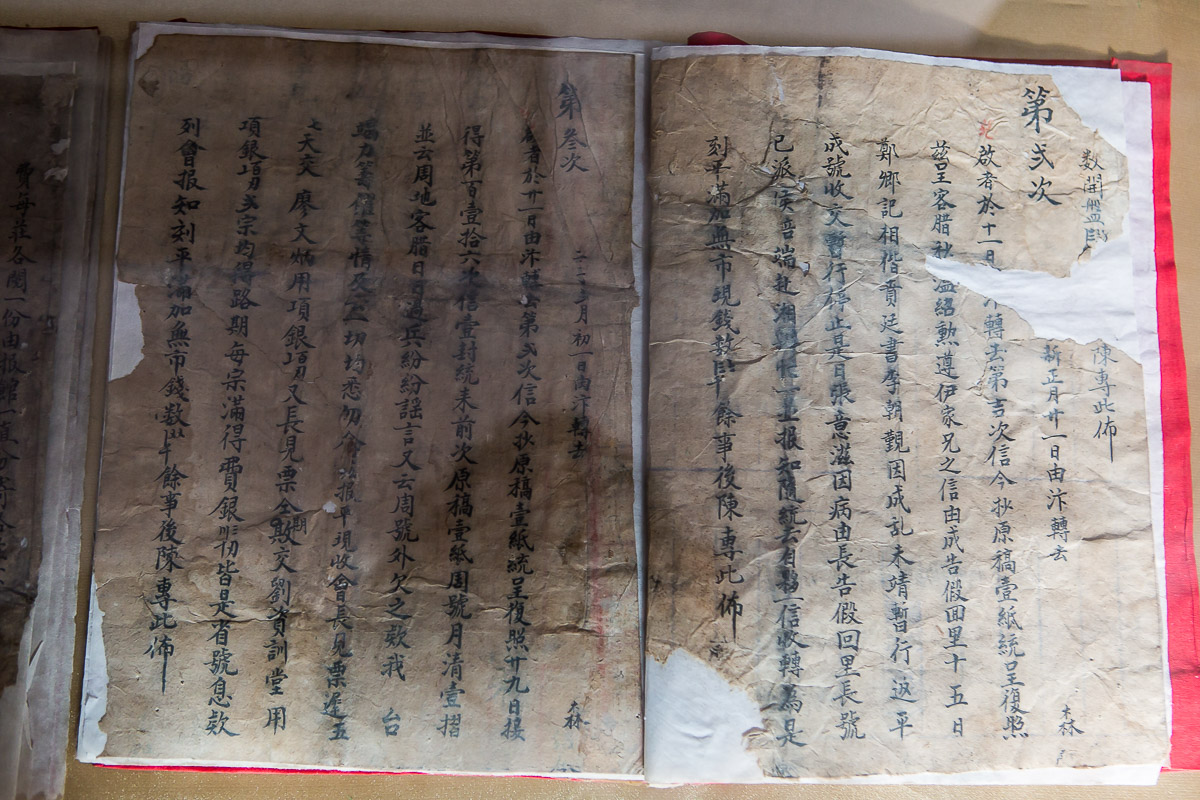 数開盤
陳專此佈
第弍次
新正月廿一日由汴轉去
森
啟者於十一日 轉去第言次信今抄原稿壹紙統呈復照
茲呈客腊 溫紹勲遵伊家兄之信由成告假回里十五日
鄭鄉記相偕賁廷書李朝覲因成乱未靖暫行返平
成號收交暫行停止是日張意滋因病由長告假回里長號
已派侯晉端赴湘 報知隨統去 信收轉為是
刻平滿加無市現钱数 餘事後陳專此佈
第叁次
二月初一日由汴轉去
森
啟者於廿一日由汴轉去第弍次信今抄原稿壹紙統呈復照廿九日接
得第百壹拾六次信壹封統来前次原稿壹紙周號月清壹摺
並云周地客腊日日過兵紛紛謠言又云周號外欠之欵我 台
竭力筹催等情及一切均悉勿念 報平現收會長見票遲五
七天交 廖文炳用項銀 又長見票全期 交劉資訓堂用
項銀 弍宗均得路期每宗滿得費銀 皆是省號息欵
列會报知刻平滿加無市錢数 餘事後陳專此佈
費每莊各閱一份由报館一直